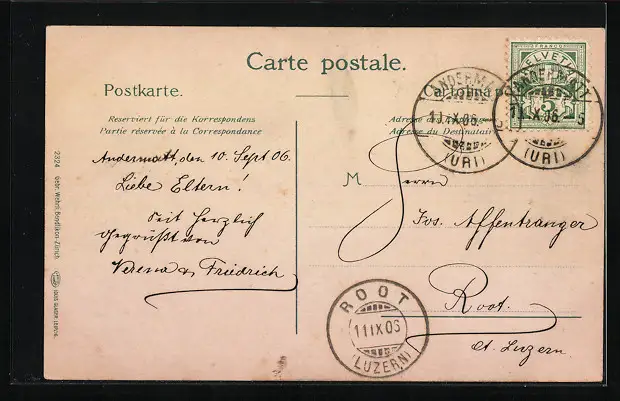 Carte postale.
Postkarte.
Cartolina po
Reserviert für die Korrespondenz
Partie réservée à la Correspondance
Adresse des
Adresse du Destinataire
HELVETIA
FRANCO
5
ANDERMATT
11.IX.06.
(URI)
ANDERMATT
11.IX.06. 5
(URI)
Andermatt, den 10. Sept 06.
Liebe Eltern!
Seit herzlich
gegrüßt von
Verena & Friedrich
M
Herrn
Jos. Affentranger
Root.
Ct. Luzern.
ROOT
11 IX 06
(LUZERN)
2324 Gebr. Wehrli